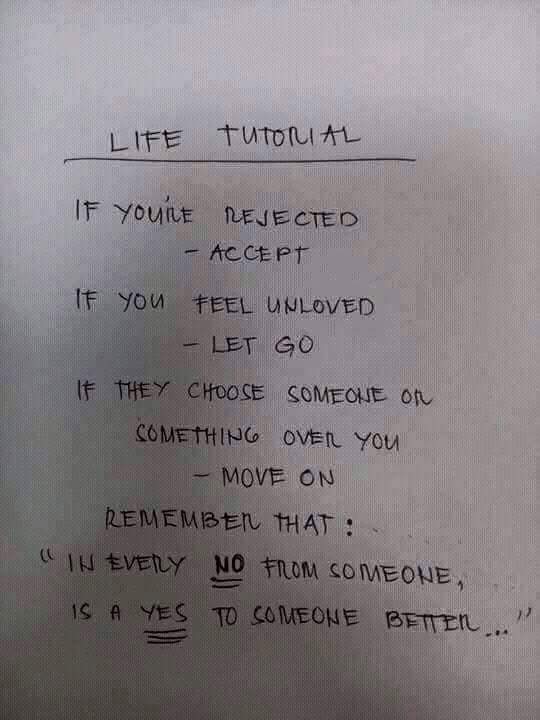 LIFE TUTORIAL
IF YOU'RE REJECTED
- ACCEPT
IF YOU FEEL UNLOVED
- LET GO
IF THEY CHOOSE SOMEONE OR
SOMETHING OVER YOU
- MOVE ON
REMEMBER THAT :
"IN EVERY NO FROM SOMEONE,
IS A YES TO SOMEONE BETTER..."